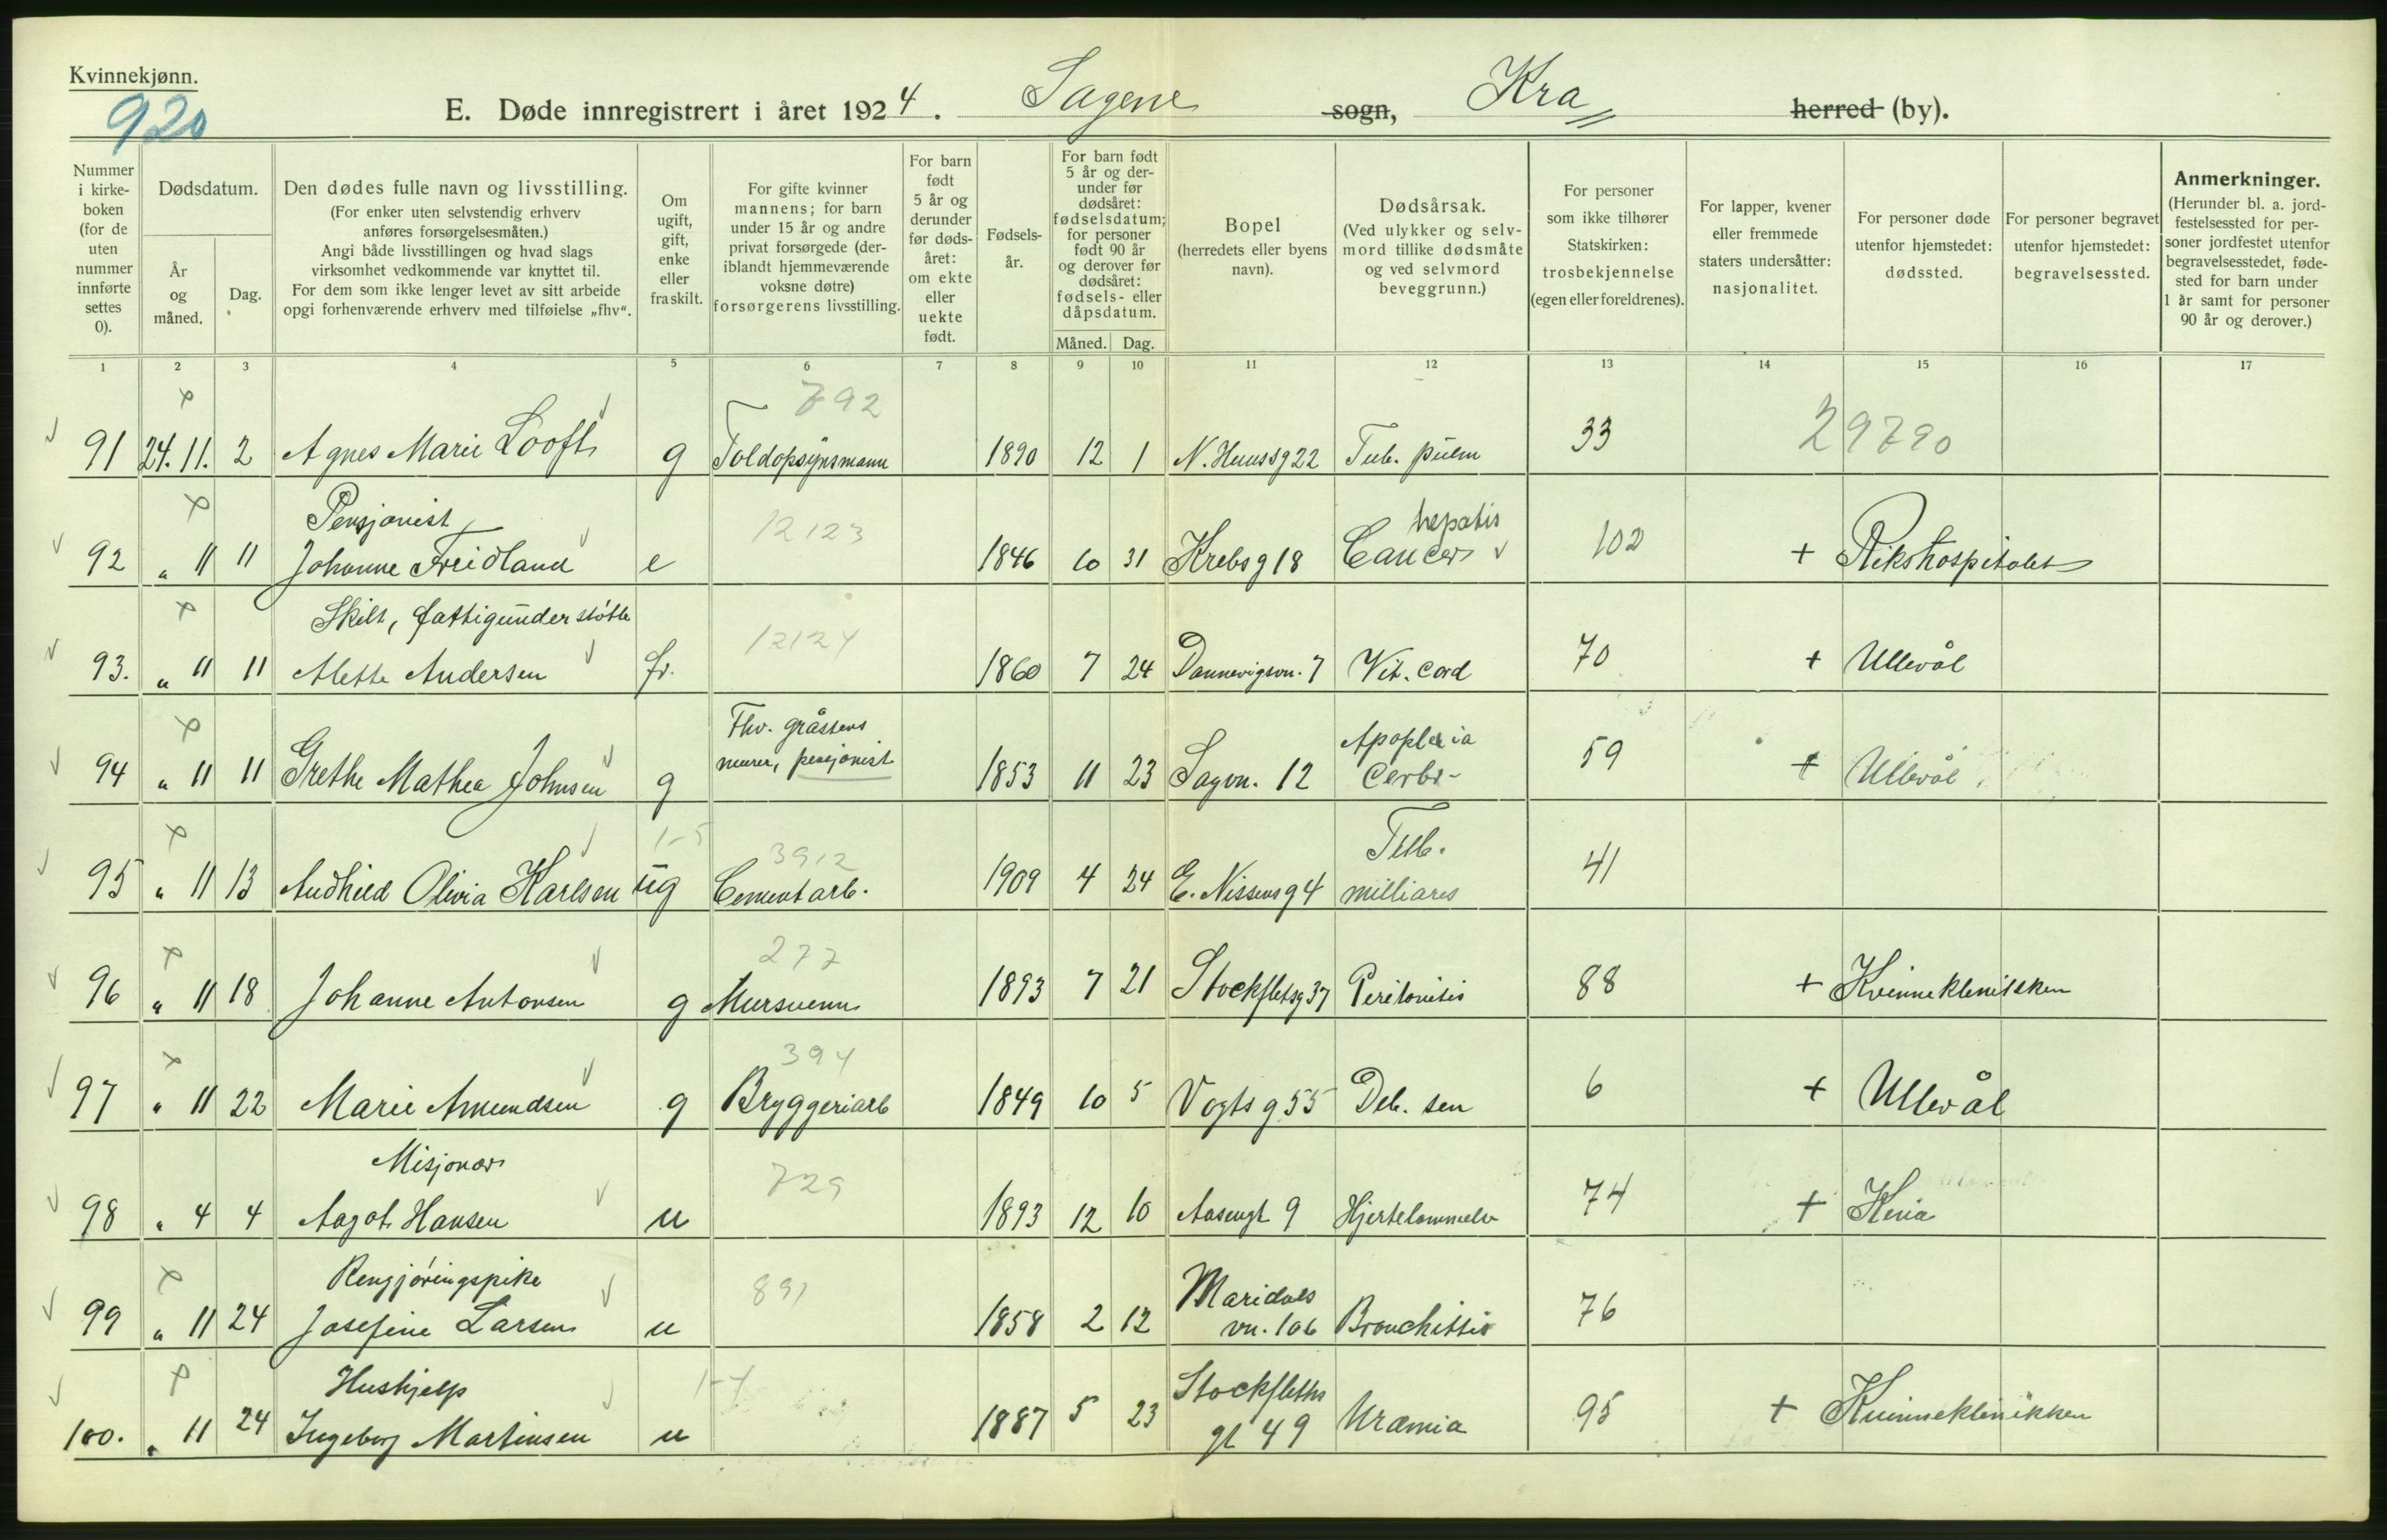 Kvinnekjønn.
920
E. Døde innregistrert i året 1924. Sagene sogn, Kra herred (by).
Nummer i kirkeboken (for de uten nummer innførte settes 0).
Dødsdatum.
År og måned.
Dag.
Den dødes fulle navn og livsstilling.
(For enker uten selvstendig erhverv anføres forsørgelsesmåten.)
Angi både livsstillingen og hvad slags virksomhet vedkommende var knyttet til.
For dem som ikke lenger levet av sitt arbeide opgi forhenværende erhverv med tilføielse „fhv“.
Om ugift, gift, enke eller fraskilt.
For gifte kvinner mannens; for barn under 15 år og andre privat forsørgede (deriblandt hjemmeværende voksne døtre) forsørgerens livsstilling.
For barn født 5 år og derunder før dødsåret: om ekte eller uekte født.
Fødselsår.
For barn født 5 år og derunder før dødsåret: fødselsdatum; for personer født 90 år og derover før dødsåret: fødsels- eller dåpsdatum.
Måned. Dag.
Bopel
(herredets eller byens navn).
Dødsårsak.
(Ved ulykker og selvmord tillike dødsmåte og ved selvmord beveggrunn.)
For personer som ikke tilhører Statskirken: trosbekjennelse (egen eller foreldrenes).
For lapper, kvener eller fremmede staters undersåtter: nasjonalitet.
For personer døde utenfor hjemstedet: dødssted.
For personer begravet utenfor hjemstedet: begravelsessted.
Anmerkninger.
(Herunder bl. a. jordfestelsessted for personer jordfestet utenfor begravelsesstedet, fødested for barn under 1 år samt for personer 90 år og derover.)
1 2 3 4 5 6 7 8 9 10 11 12 13 14 15 16 17
792
91 24. 11. 2 Agnes Marie Looft g Toldopsynsmann 1890 12 1 N. Huussg 22 Tub. pulm 33 29790
Pensjonist 12123 hepatis
92 " 11 11 Johanne Freidland e 1846 10 31 Krebsg 18 Cancer 102 + Rikshospitalet
Skilt, fattigunderstøtte 12124
93. " 11 11 Alette Andersen fr. 1860 7 24 Dannevigsvn. 7 Vit. cord 70 + Ullevål
Fhv. gråstens Apoplexia
murer, pensjonist
94 " 11 11 Grethe Mathea Johnsen g 1853 11 23 Sagvn. 12 Cerbr- 59 + Ullevål
1-5 3912 Tub.
95 " 11 13 Audhild Olivia Karlsen ug Cementarb. 1909 4 24 E. Nissensg 4 milliares 41
277
96 " 11 18 Johanne Antonsen g Mursvenn 1893 7 21 Stockfletsg 37 Peritonitis 88 + Kvinneklenikken
394
97 " 11 22 Marie Amundsen g Bryggeriarb 1849 10 5 Vogts g 55 Deb. sen 6 + Ullevål
Misjonær 729
98 " 4 4 Aagot Hansen u 1893 12 10 Aasengt 9 Hjertelammelse 74 + Kina
Rengjøringspike 891 Maridals
99 " 11 24 Josefine Larsen u 1858 2 12 vn. 106 Bronchittis 76
Hushjelp 1-7 Stockfleths
100. " 11 24 Ingeborg Martinsen u 1887 5 23 gt 49 Uræmia 95 + Kvinneklenikken